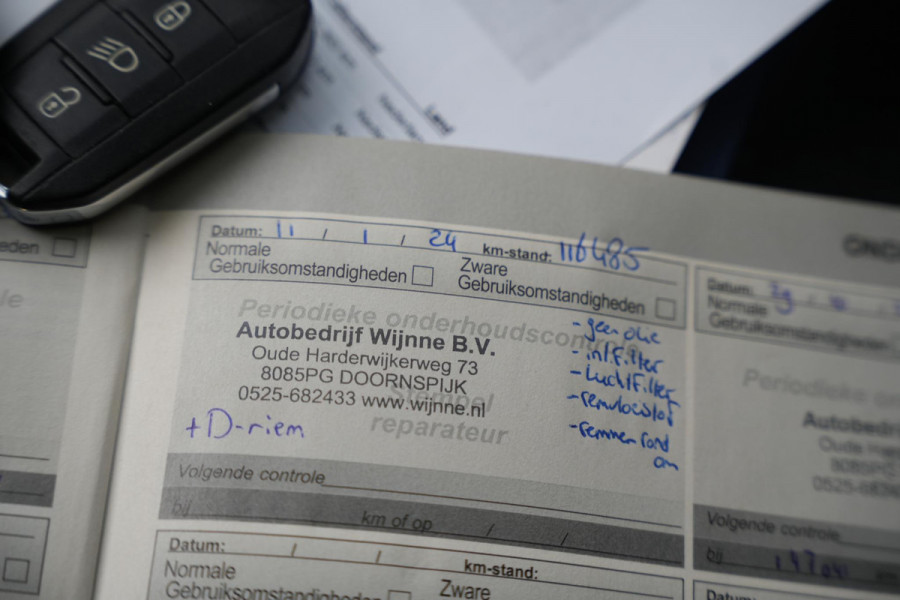 Land
Datum: 11 / 1 / 24 km-stand: 116485
Normale
Gebruiksomstandigheden
Zware
Gebruiksomstandigheden
Periodieke onderhoudscontrole
Autobedrijf Wijnne B.V.
Oude Harderwijkerweg 73
8085PG DOORNSPIJK
0525-682433 www.wijnne.nl
Stempel
reparateur
+D-riem
- geen olie
- int Filter
- Luchtfilter
- remvloeistof
- remmen rond
om
Volgende controle
bij km of op / /
Datum: / / km-stand:
Normale
Gebruiksomstandigheden
Zware
Datum:
Normale
Gebruiksomstandigheden
Periodieke
Autobedrijf
Volgende controle
bij
Datum: